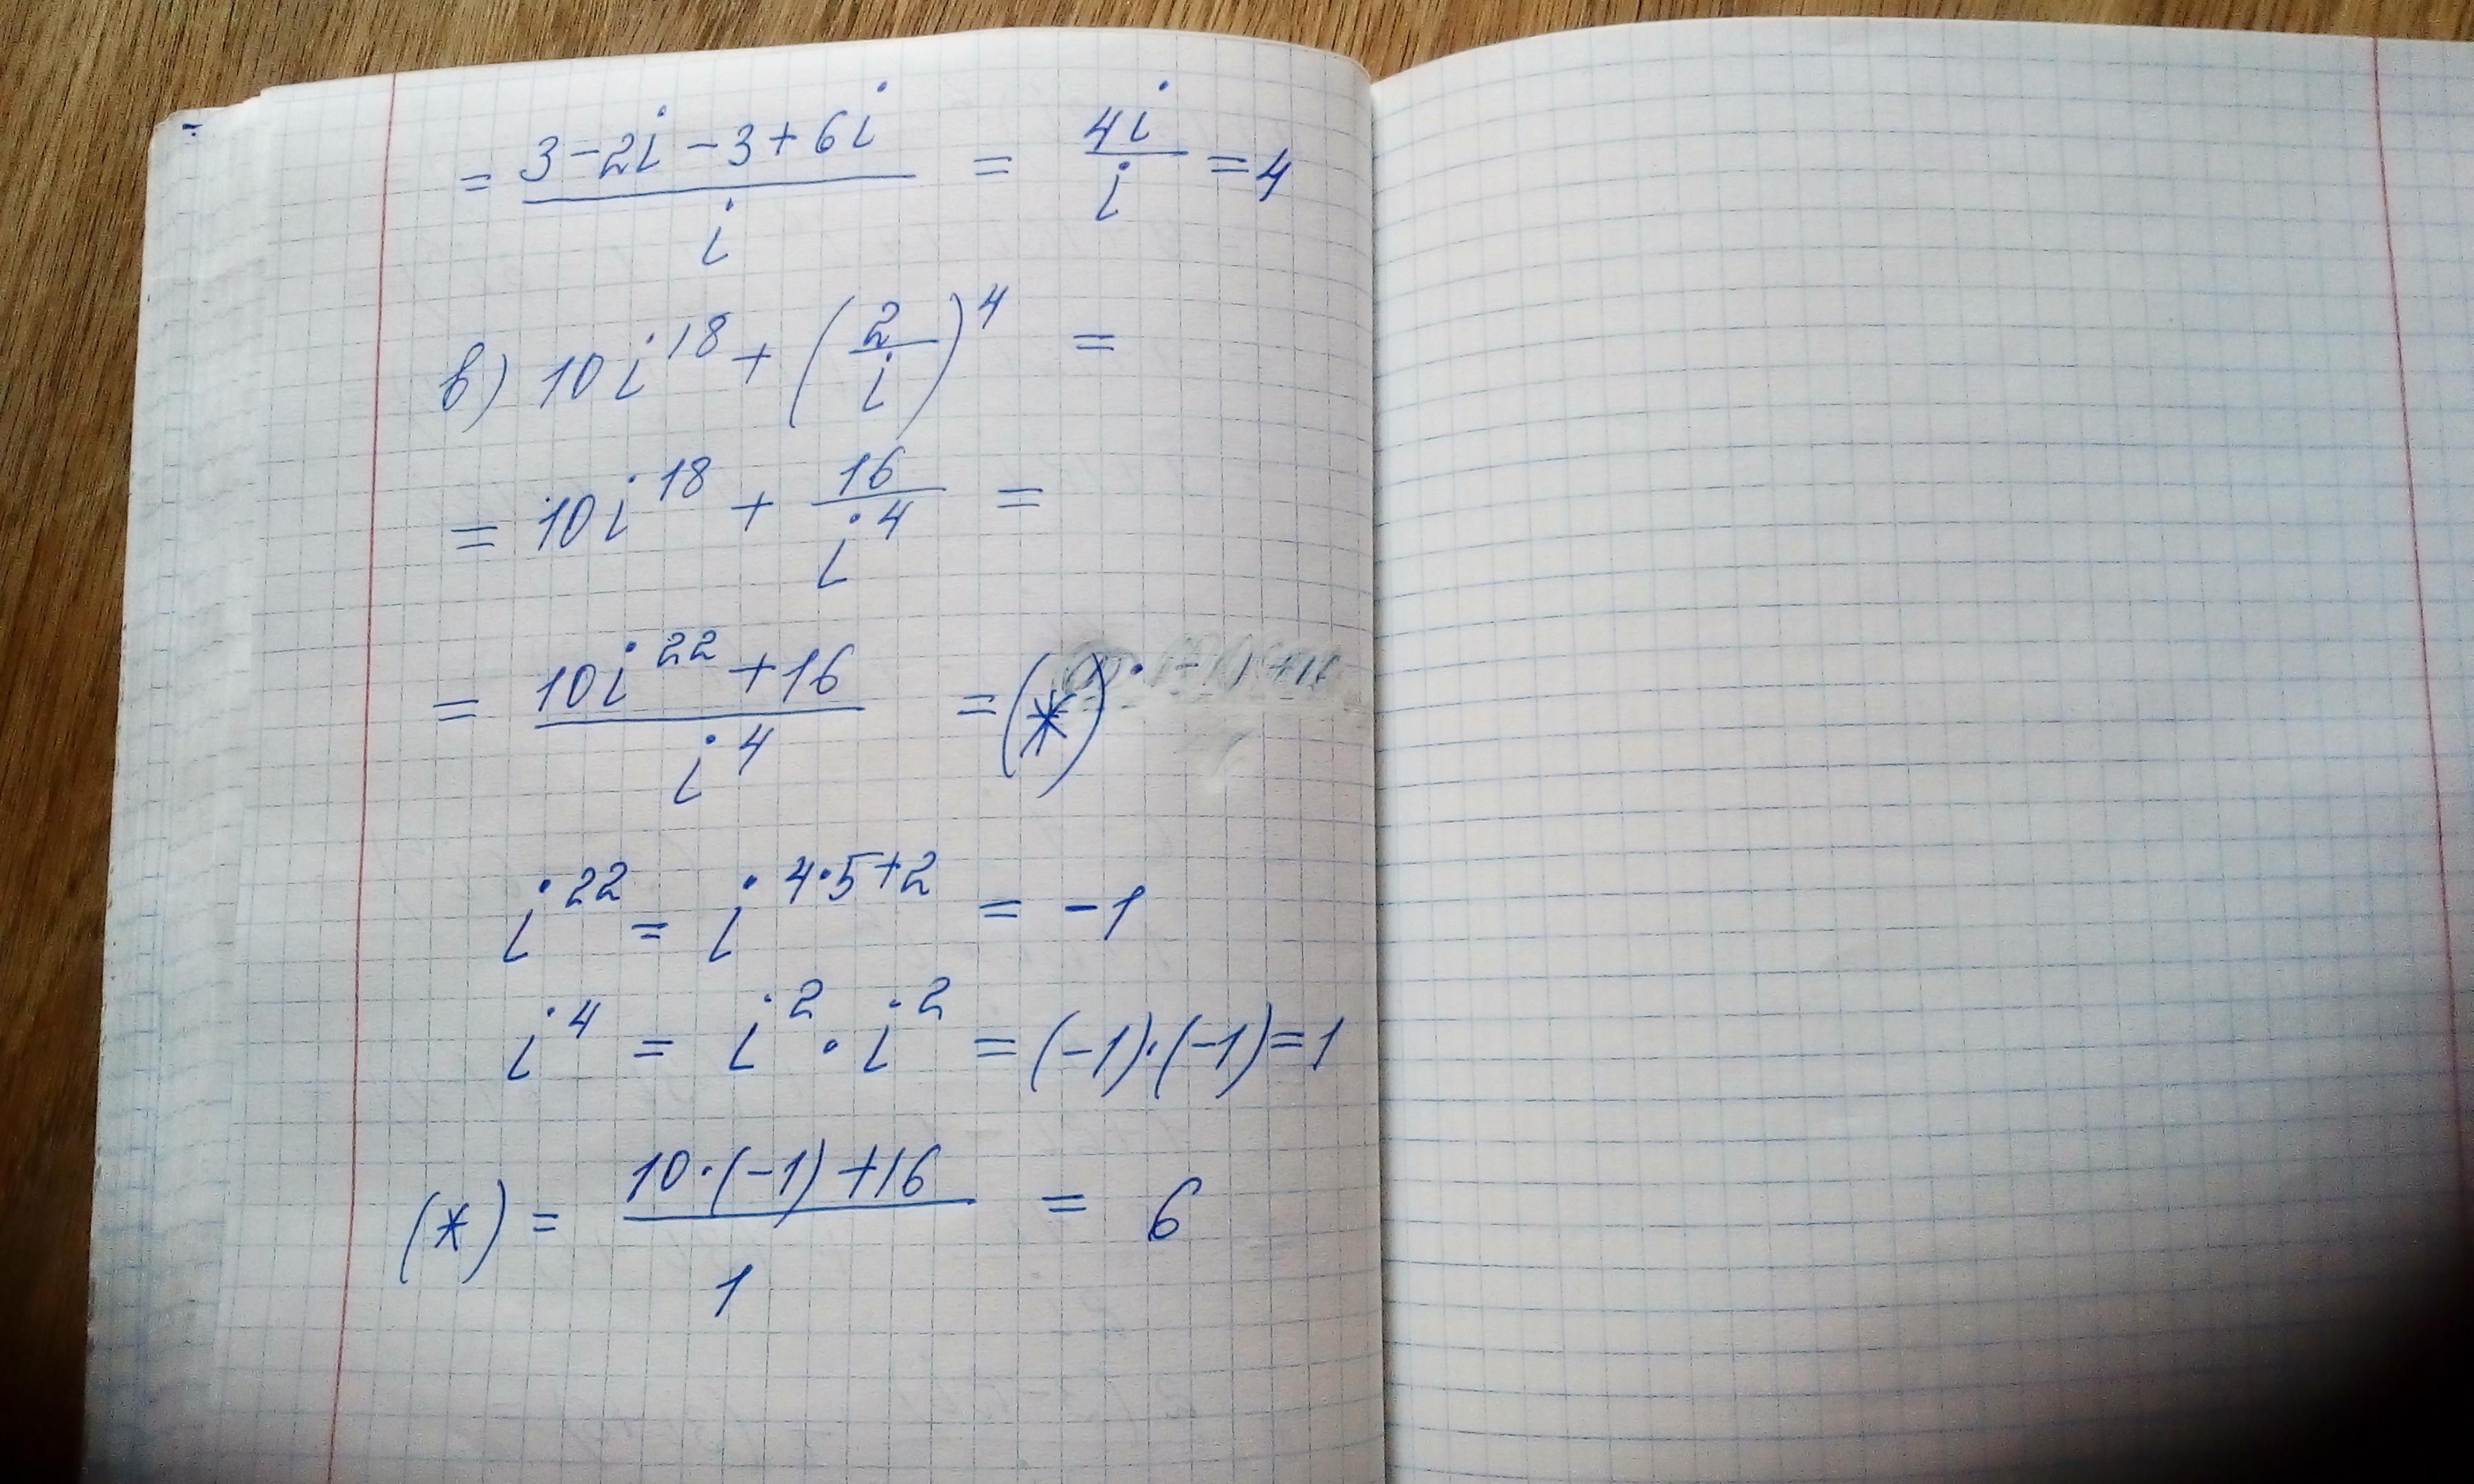 = (3 - 2i - 3 + 6i) / i = 4i / i = 4
в) 10i^18 + (2/i)^4 =
= 10i^18 + 16/i^4 =
= (10i^22 + 16) / i^4 = (*)
i^22 = i^(4·5+2) = -1
i^4 = i^2 · i^2 = (-1)·(-1) = 1
(*) = (10·(-1) + 16) / 1 = 6